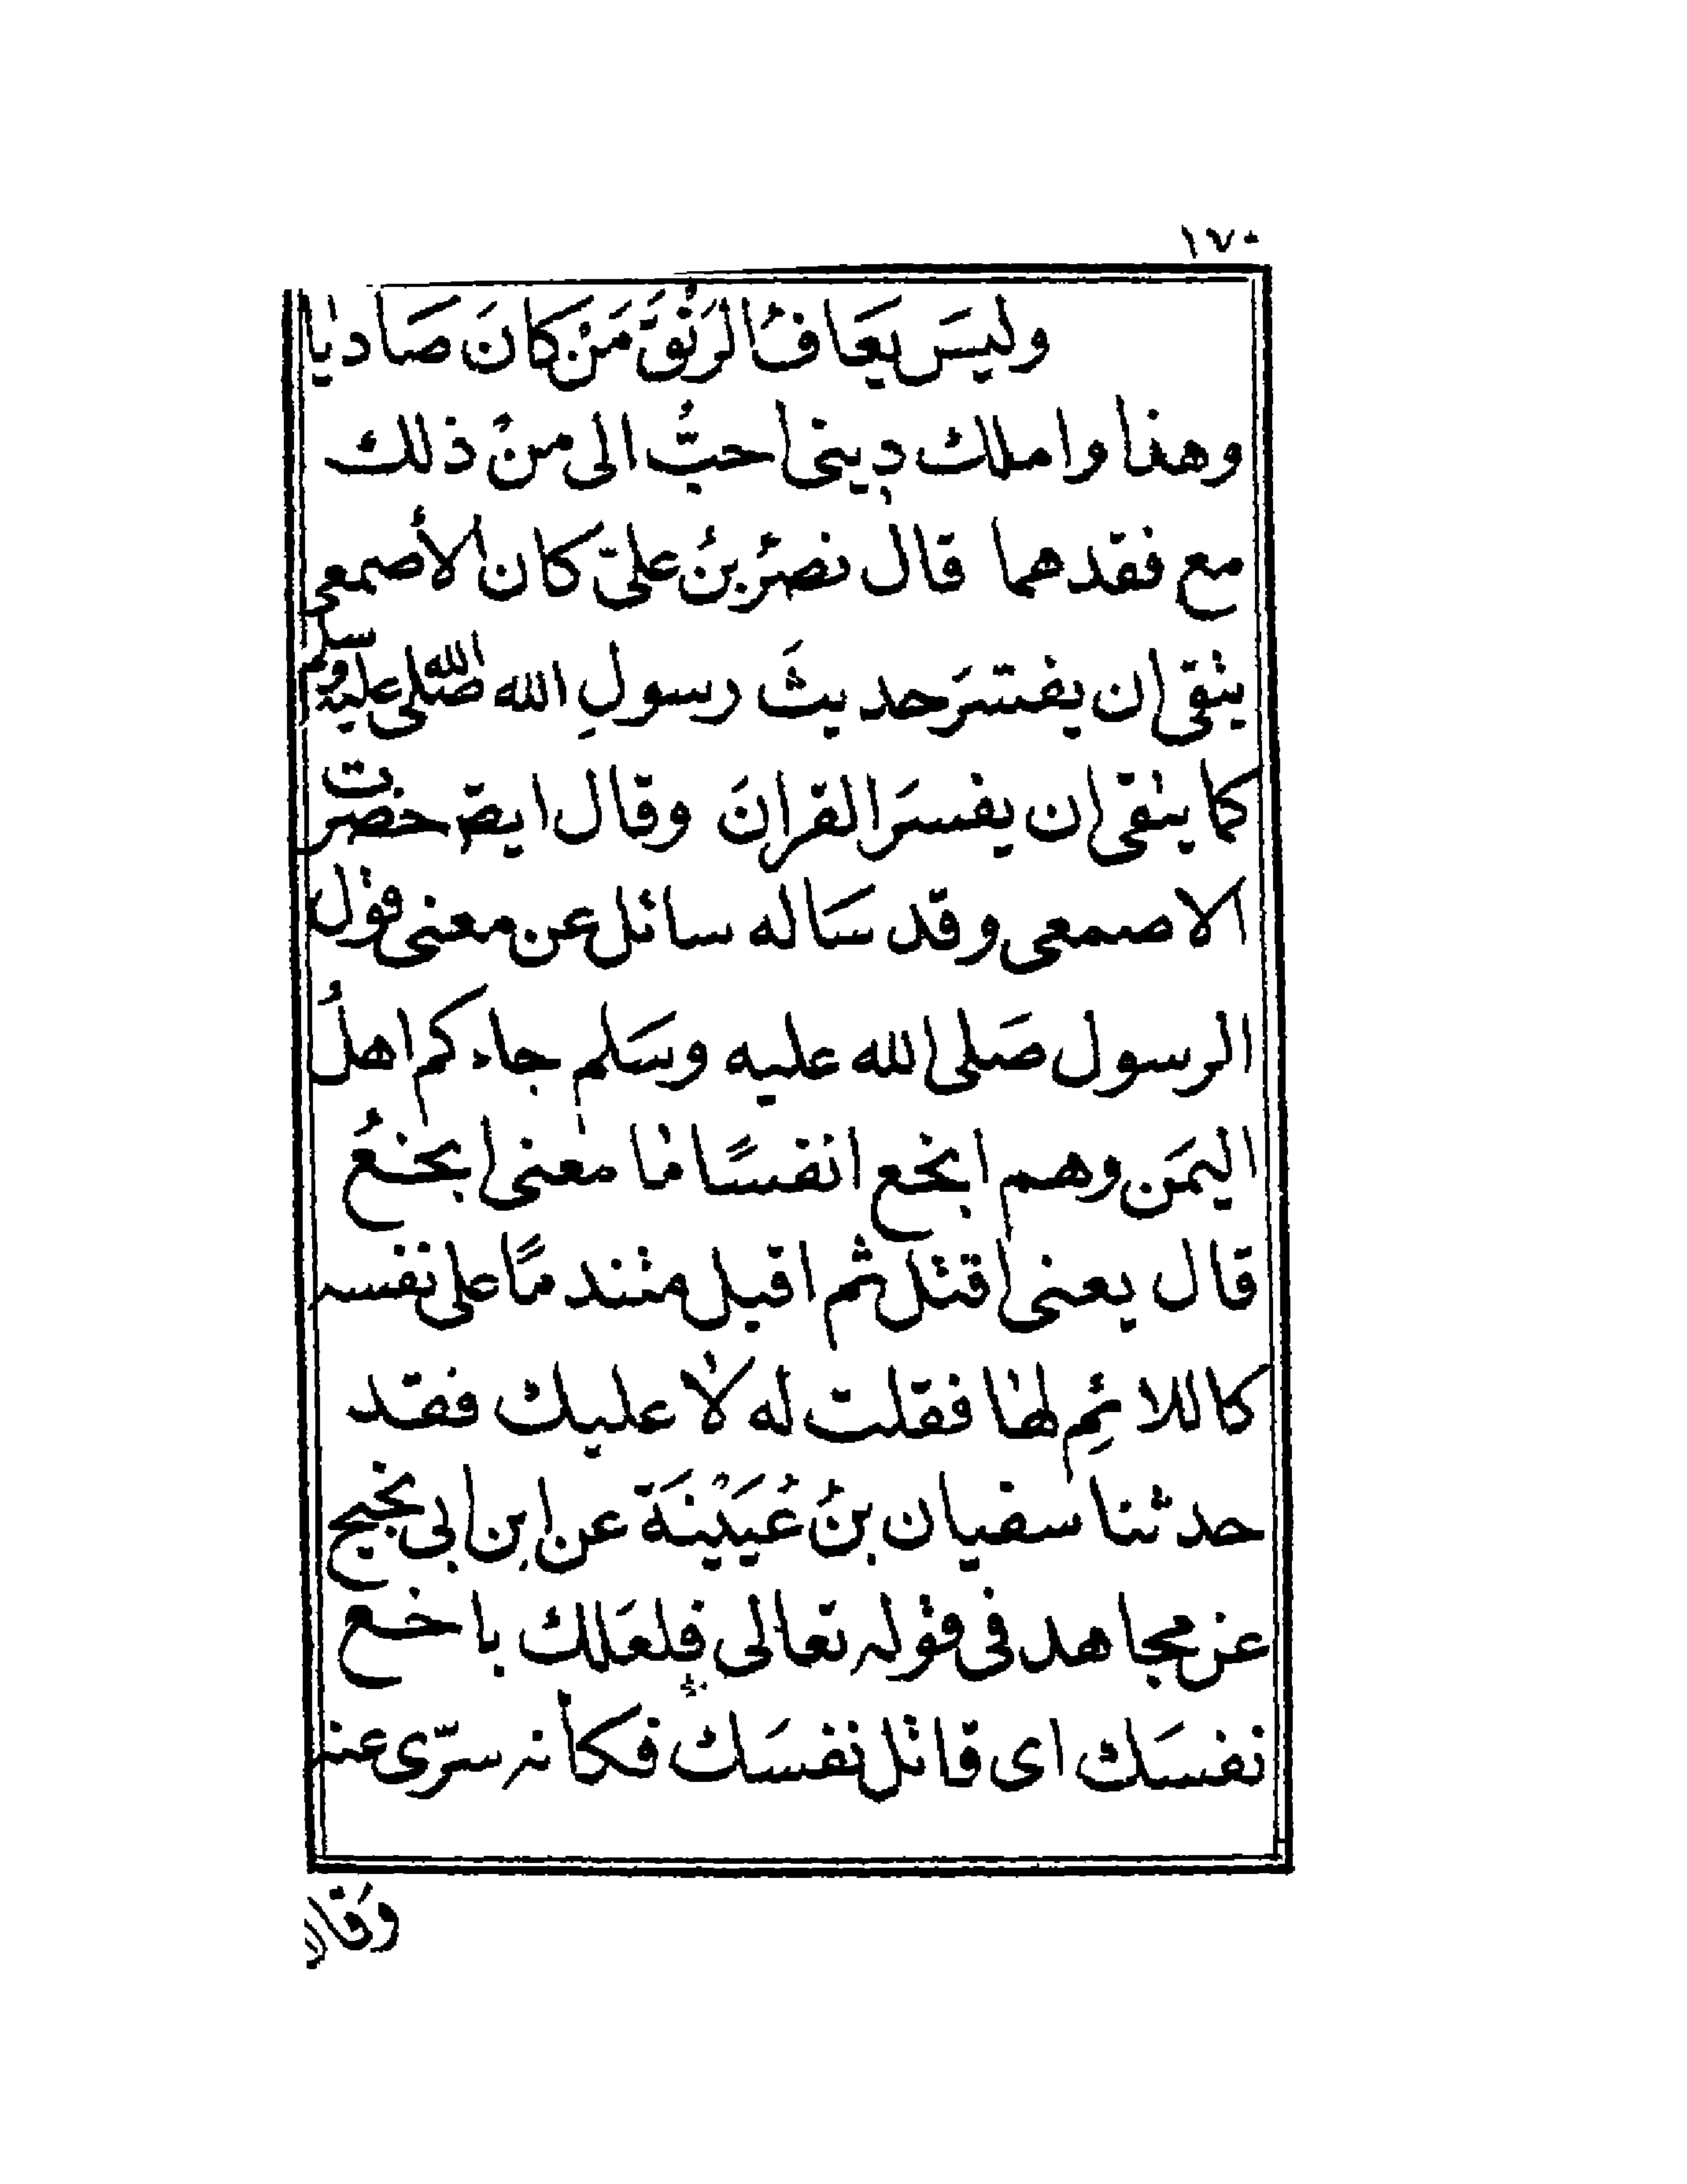 ١٧٠
وليسَ يعَافُ الرَنْقَ مَنْ كانَ صَاديا
وهذا واملك دينى احبُّ الى منْ ذلك
مع فقدهما قال نصرُ بنُ علىّ كان الأصمعى
يتقى ان يفسّرَ حديثَ رسولِ الله صلّى الله عليه وسلم
كما يتقى ان يفسرَ القرانَ وقال ايضَ حضرت
الاصمعى وقد سَاله سائل عن معنى قول
الرسول صَلى الله عليه وسَلم جاءكم اهلُ
اليمَن وهم ابخع انفسًا ما معنى ابخعُ
قال يعنى اقتل ثم اقبل متندمًا على نفسه
كاللائمِ لها فقلت له لا عليك فقد
حدثنا سفيان بنُ عُيَيْنَة عن ابن ابى نجيح
عن مجاهد فى قوله تعالى فلعَلك باخع
نفسَك اى قاتل نفسَك فكأنه سرّى عنه
وقال